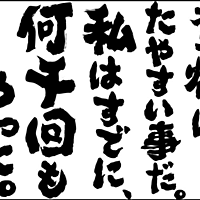 たやすい事だ。
私はすでに、
何千回も
やった。